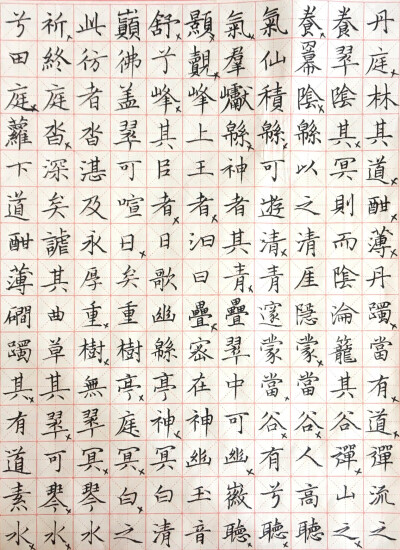 丹庭林其道酣薄丹躅當有道彈流之
養翠陰其冥則而陰淪籠其谷彈山之
養冪陰緜以之清崖隱蒙當谷人高聽
氣仙積緜可遊清青邃蒙當谷有兮聽
氣羣巘緜神者其青疊翠中可幽徽聽
顯覿峰上王者汩曰疊密在神幽玉音
舒兮峰其臣者日歌幽緜亭神冥白清
巔彿盖翠可喧日矣重樹亭庭冥白之
此彷者沓湛及永厚重樹無翠冥琴之
祈終庭沓深矣謔其曲草其翠可琴水
兮田庭蘿下道酣薄磵躅其有道素水